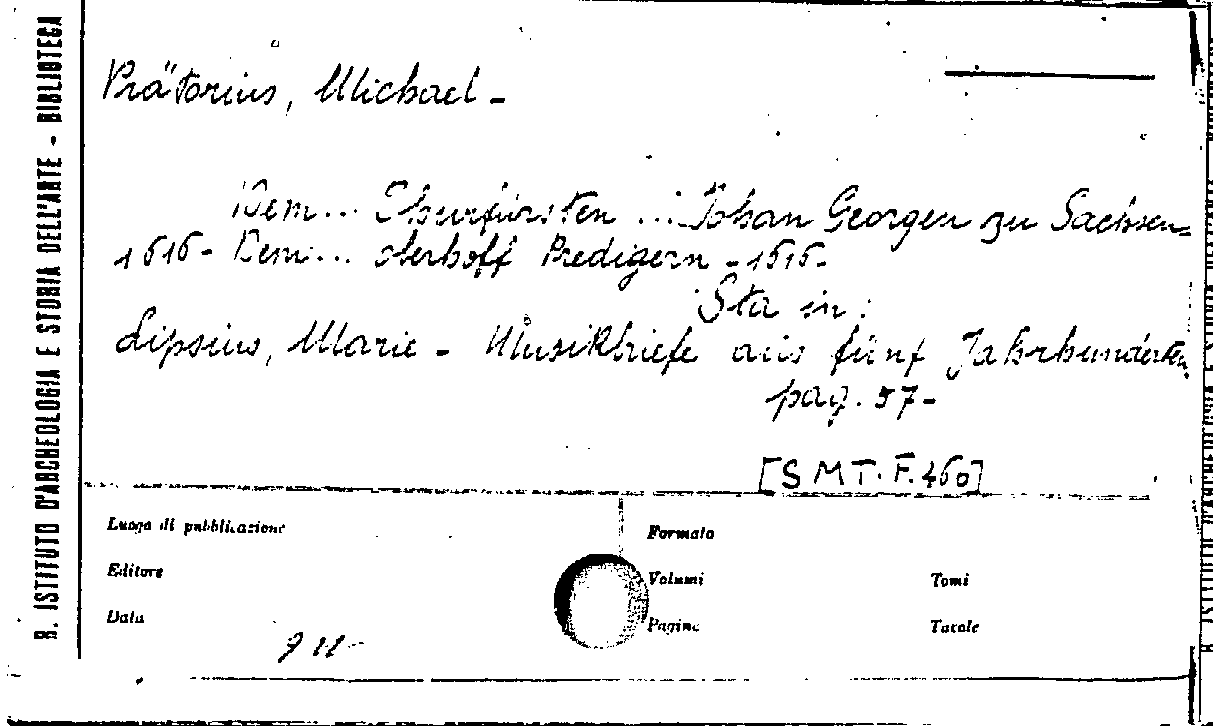 R. ISTITUTO D'ARCHEOLOGIA E STORIA DELL'ARTE - BIBLIOTECA
Prätorius, Michael -
Dem... Churfürsten ... Johan Georgen zu Sachsen -
1616 - Dem... oberhoff Predigern - 1616 -
Sta in:
Lipsius, Marie - Musikbriefe aus fünf Jahrhunderten
pag. 57 -
[S M T. F. 460]
Luogo di pubblicazione
Formato
Editore
Volumi
Tomi
Data
Pagine
Tavole